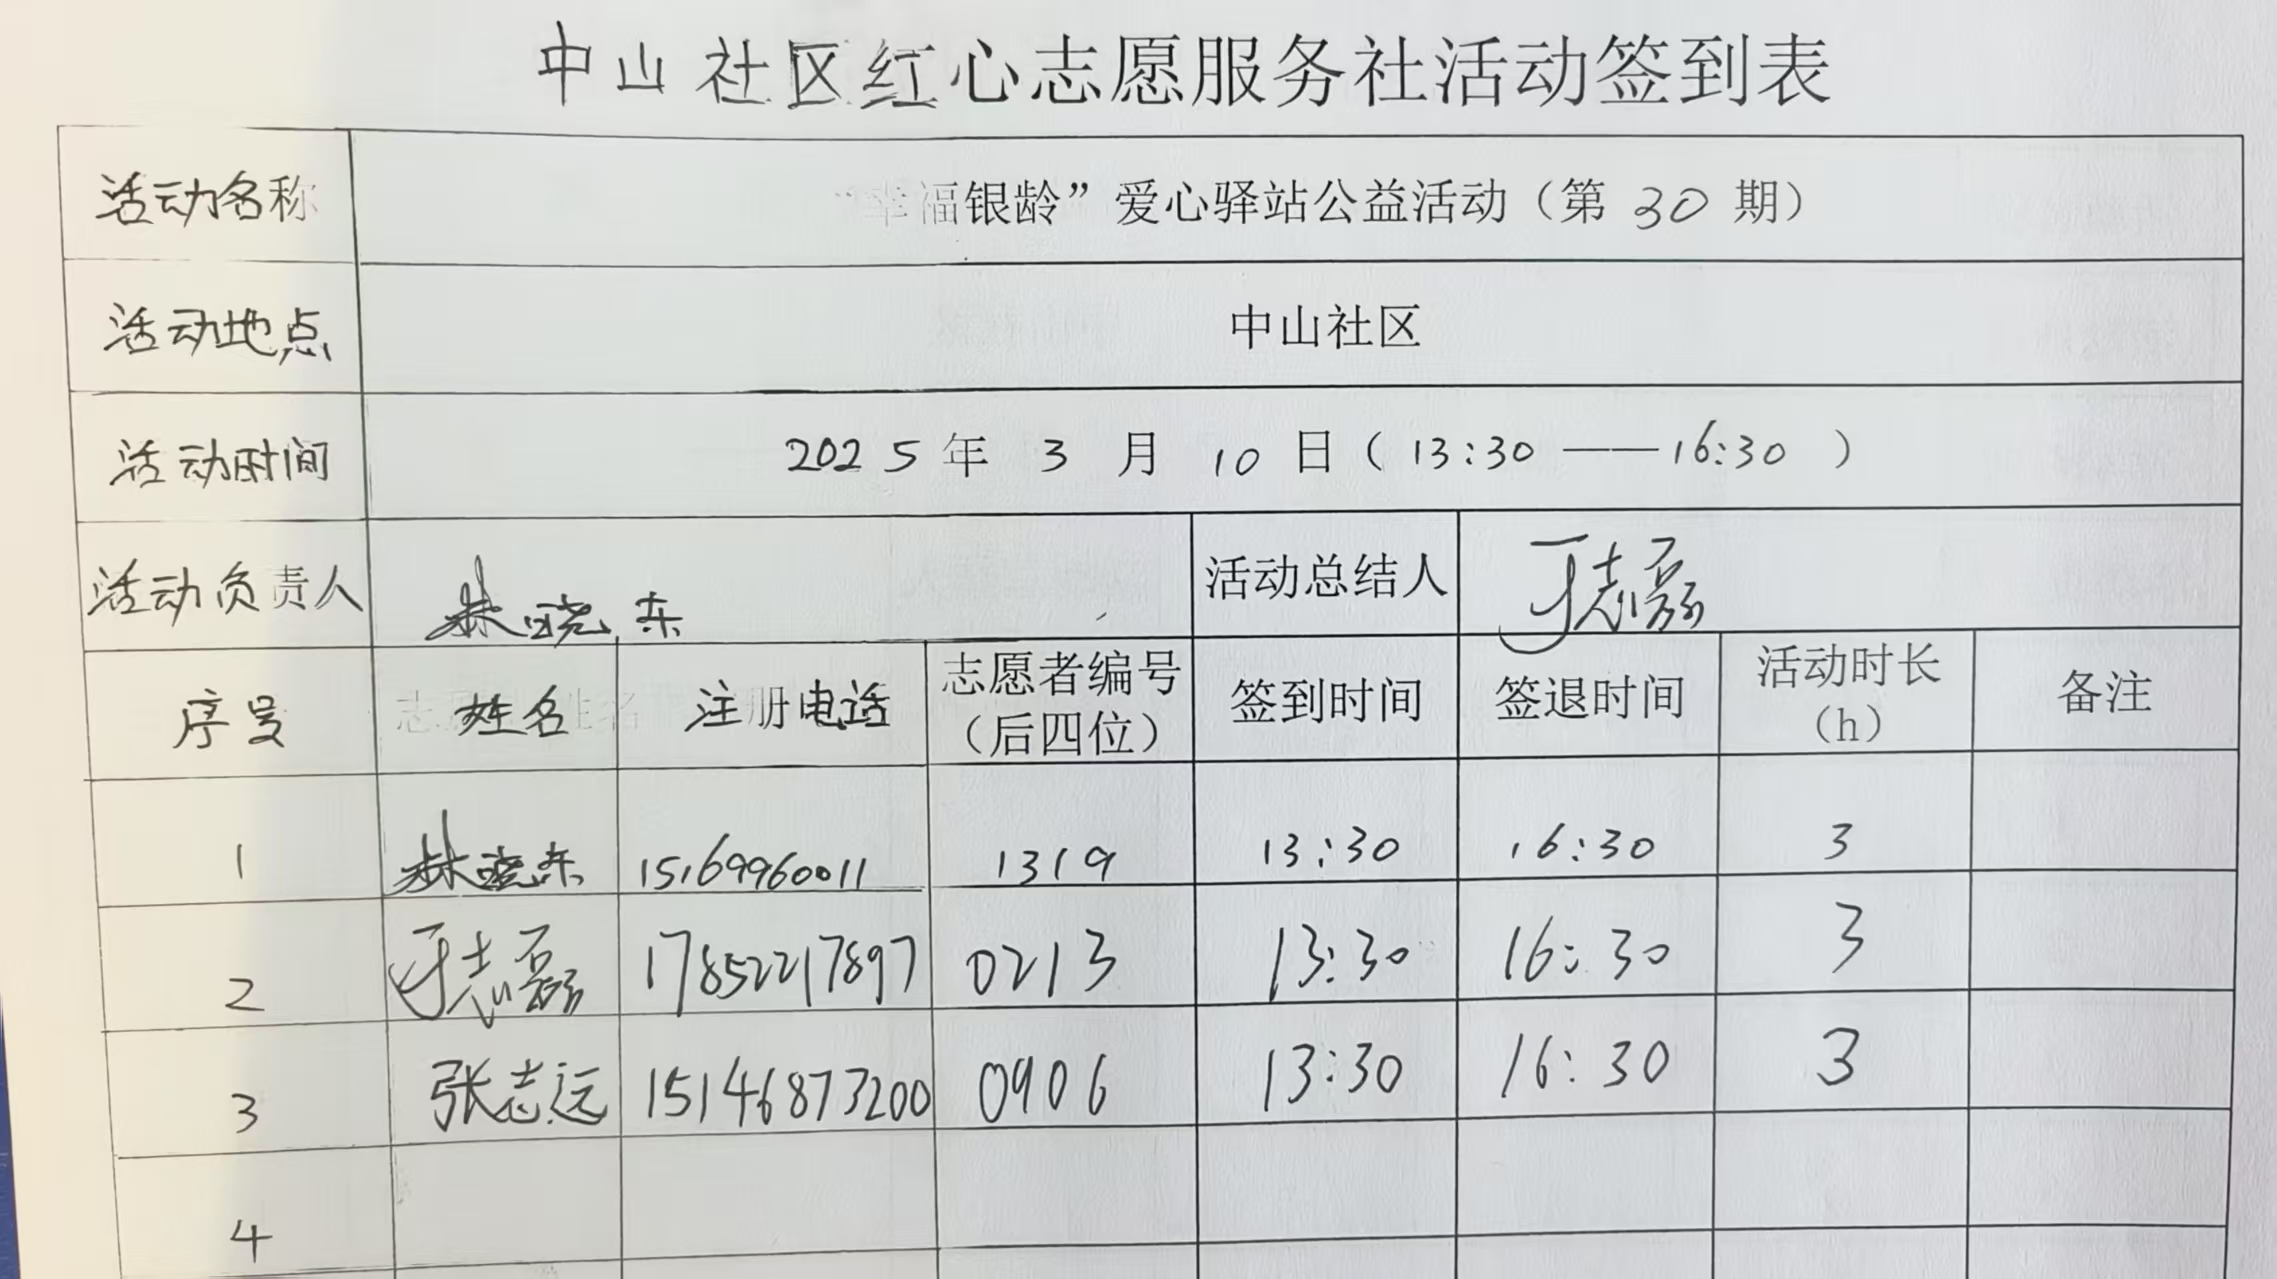 中山社区红心志愿服务社活动签到表
活动名称 “幸福银龄”爱心驿站公益活动（第 30 期）
活动地点 中山社区
活动时间 2025 年 3 月 10 日（13:30 ——16:30 ）
活动负责人 林晓东 活动总结人 于志磊
序号 姓名 注册电话 志愿者编号（后四位） 签到时间 签退时间 活动时长（h） 备注
1 林晓东 15169960011 1319 13:30 16:30 3
2 于志磊 17852217897 0213 13:30 16:30 3
3 张志远 15146873200 0906 13:30 16:30 3
4